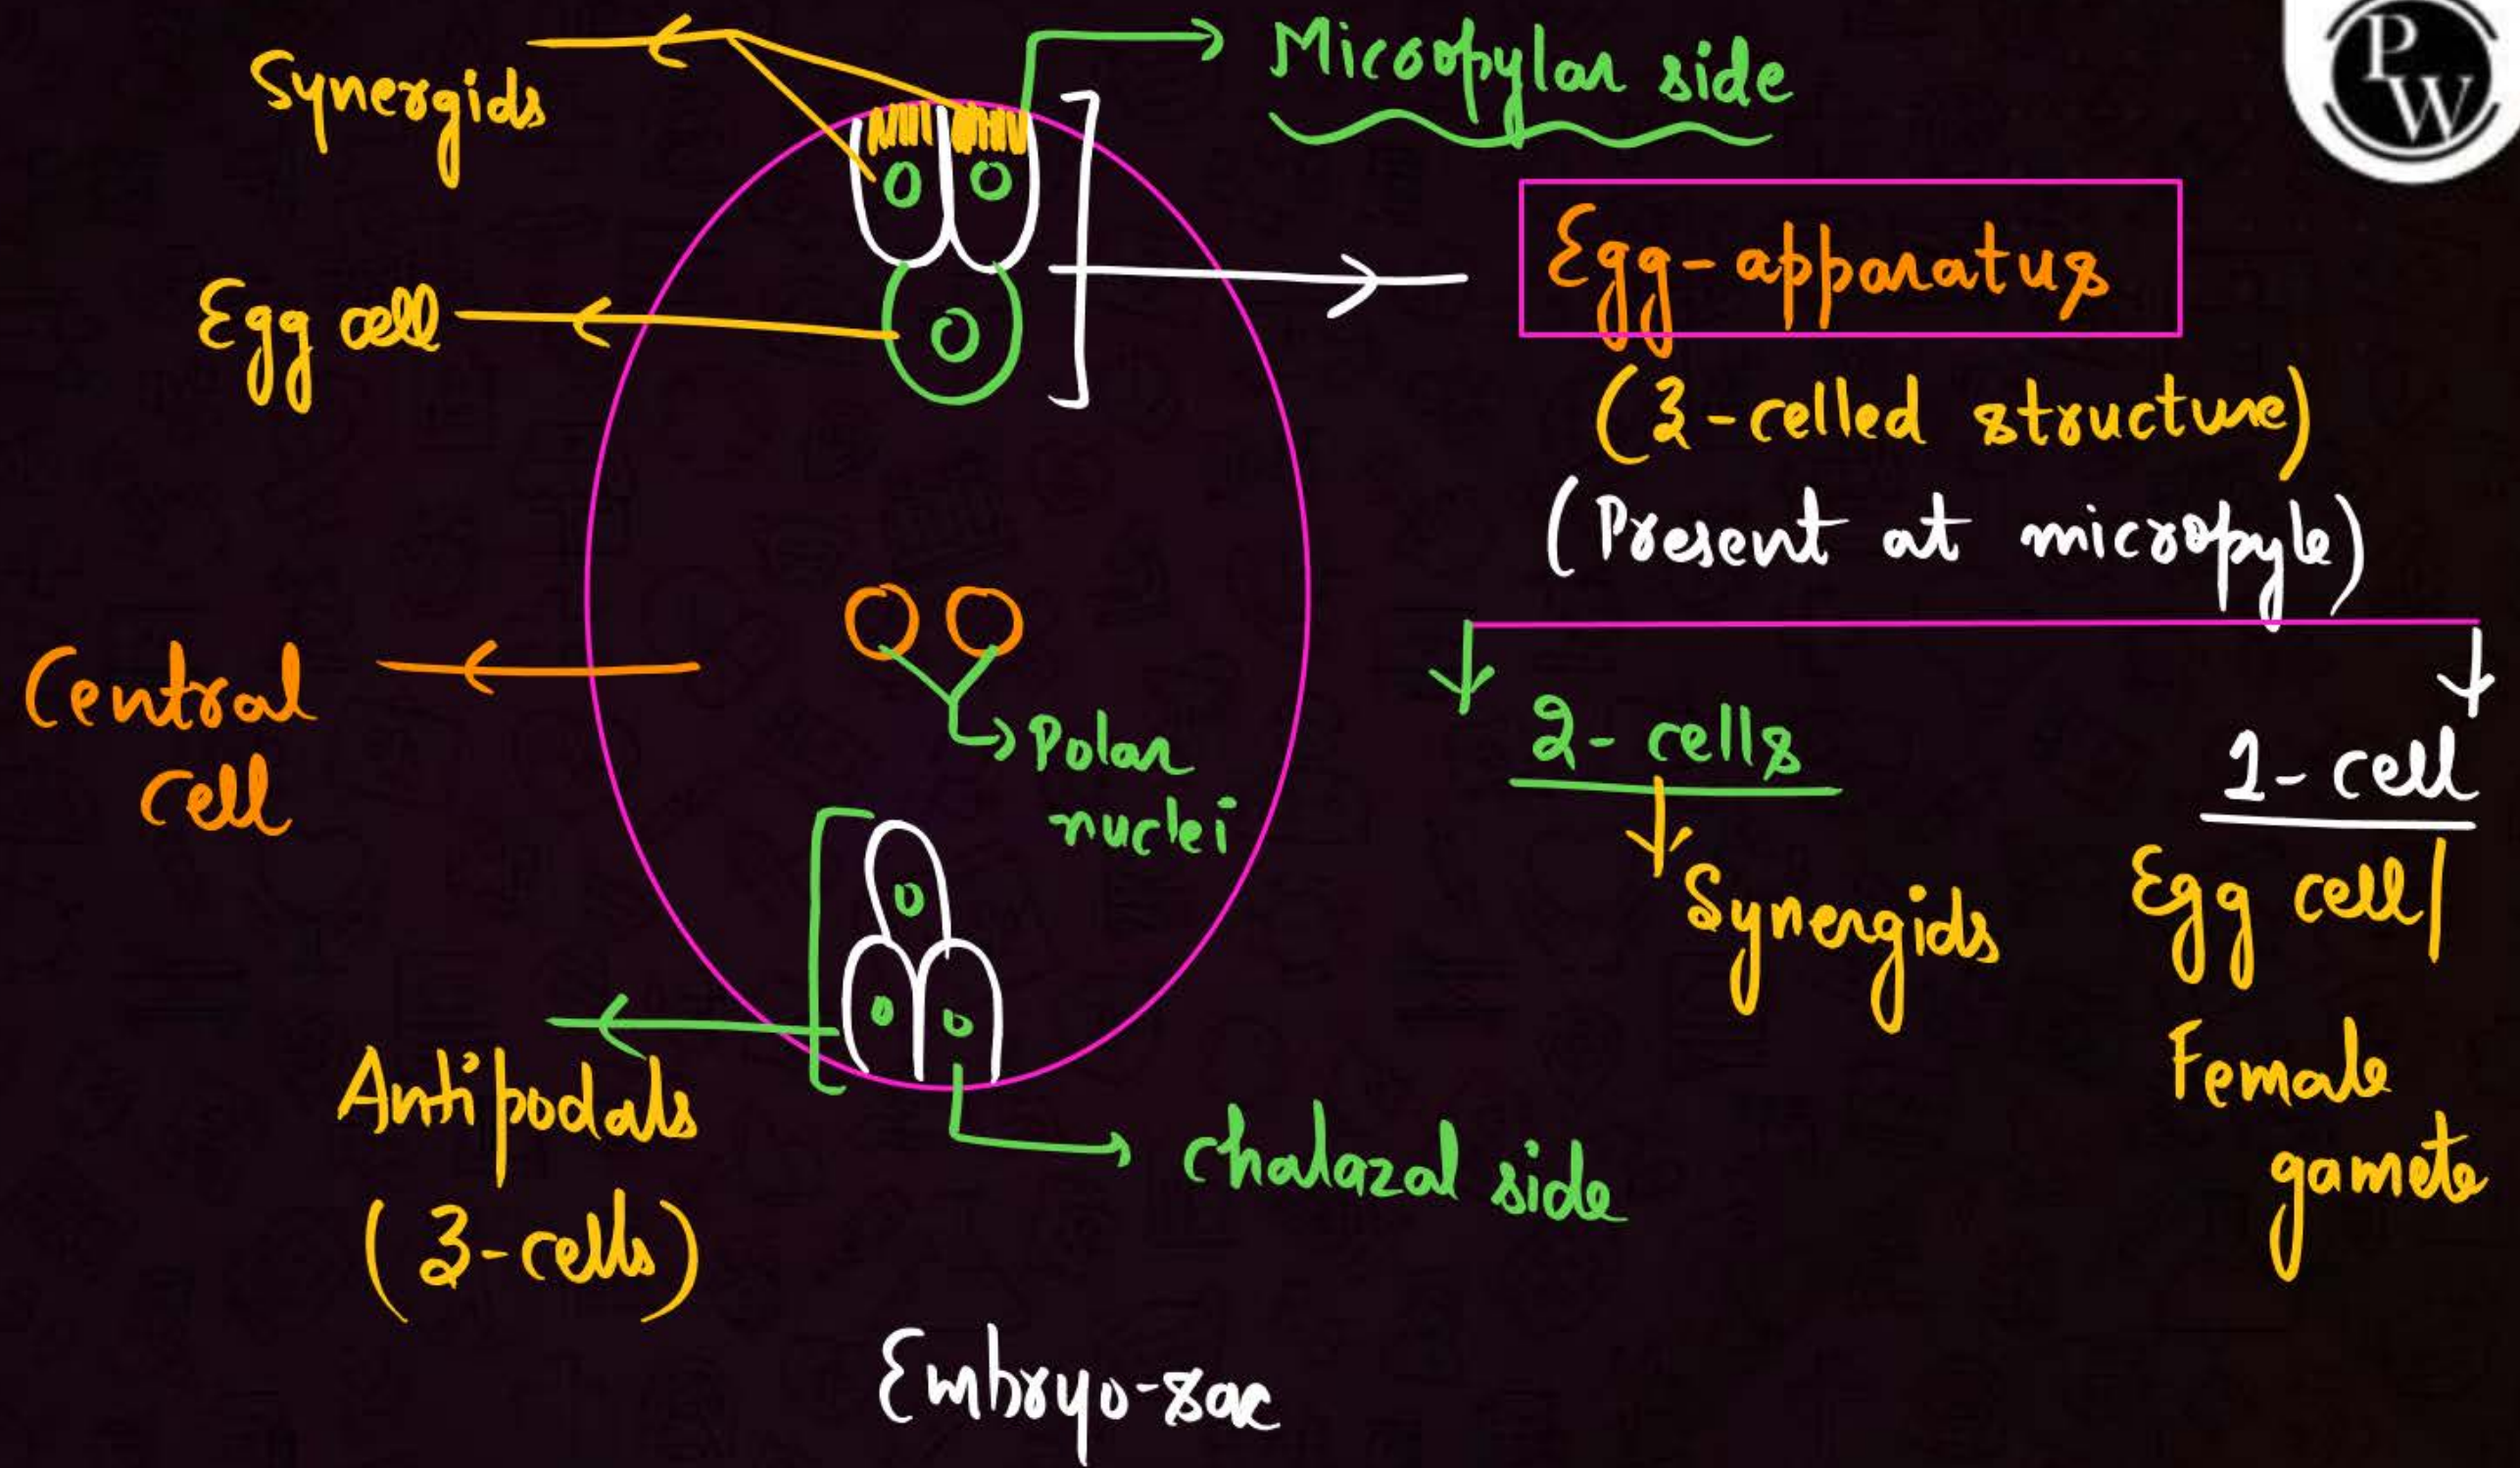 PW
Synergids
Micropylar side
Egg cell
Egg-apparatus
(3-celled structure)
(Present at micropyle)
Central
cell
Polar
nuclei
2-cells
Synergids
1-cell
Egg cell/
Female
gamete
Antipodals
(3-cells)
chalazal side
Embryo-sac